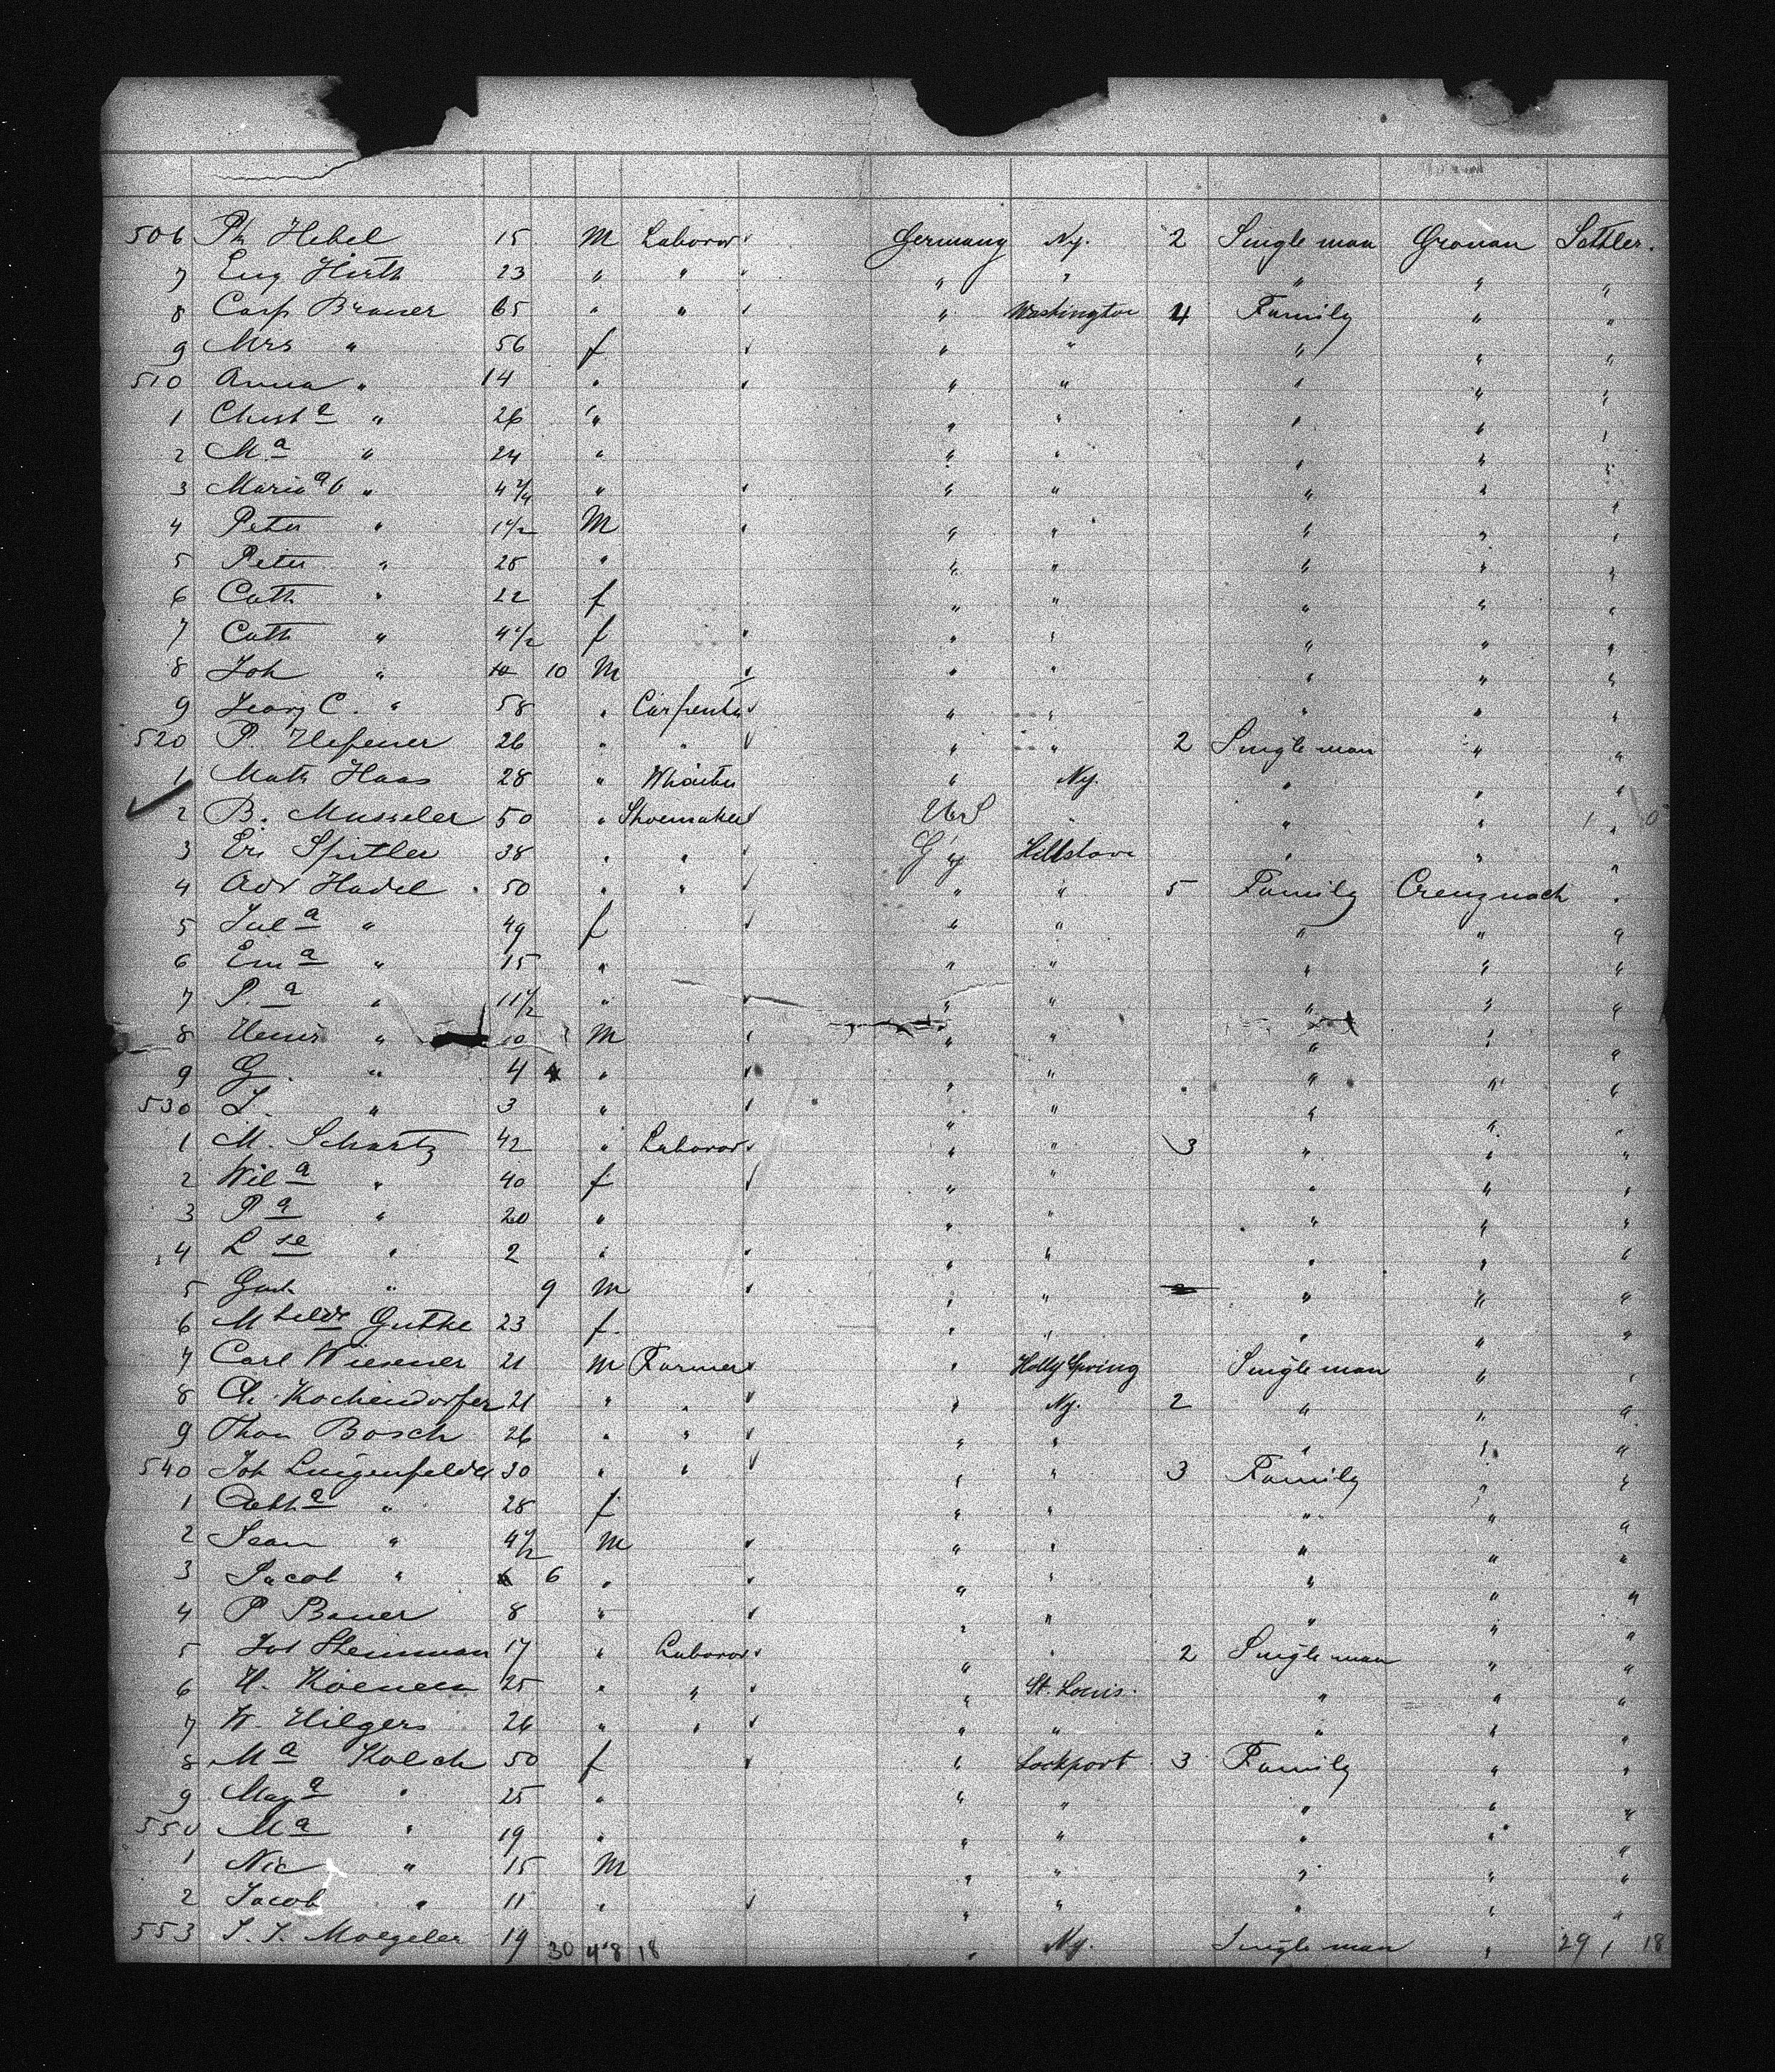 506 Ph Hebel 15 M Laborer Germany Ny. 2 Single man Gronau Settler.
7 Eug. Hirth 23 " " " " " " "
8 Casp Brauer 65 " " " Washington 4 Family " "
9 Mrs " 56 f " " " " "
510 Anna " 14 " " " " " "
1 Christ a " 26 " " " " " "
2 M a " 24 " " " " " "
3 Maria " 4 " " " " " "
4 Peter " 1 1/2 M " " " " "
5 Peter " 25 " " " " " "
6 Cath " 22 f " " " " "
7 Cath " 4 1/2 f " " " " "
8 Joh " 10 M " " " " "
9 Georg C. " 58 " Carpenter " " " " "
520 P. 26 " " " " 2 Single man " "
1 Math Haas 28 " " Ny. " " "
2 B. Musseler 50 " Shoemaker U S " " " "
3 Spitler 38 " " G y " " "
4 Adr Hadel 50 " " " " 5 Family Creuznach "
5 Jul a " 49 f " " " " "
6 Em a " 15 " " " " " "
7 P. a " 11 1/2 " " " " " "
8 " 10 M " " " " "
9 G. " 4 " " " " " "
530 " 3 " " " " " "
1 M. Schartz 42 " Laborer " " 3 " " "
2 Wil a " 40 f " " " " "
3 P a " 20 " " " " " "
4 L se " 2 " " " " " "
5 " 9 M " " " " "
6 M Guthe 23 f " " " " "
7 Carl Wiesener 21 M Farmer " Holly Spring Single man " "
8 Ch. Kochendorfer 21 " " " Ny. 2 " " "
9 Thom Bosch 26 " " " " " " "
540 Joh Lingenfelder 30 " " " " 3 Family " "
1 a " 28 f " " " " "
2 Jean " 4 1/2 M " " " " "
3 Jacob " 6 " " " " " "
4 P Bauer 8 " " " " " "
5 Steinman 17 " Laborer " " 2 Single man " "
6 H. Koenen 25 " " " St. Louis. " " "
7 W. Hilgers 26 " " " " " " "
8 M a Kolsch 50 f " Lockport 3 Family " "
9 a " 25 " " " " " "
550 M a " 19 " " " " " "
1 Nic " 15 M " " " " "
2 Jacob " 11 " " " " " "
553 Moegeler 19 30 48 18 " Ny. Single man " 29 1 18